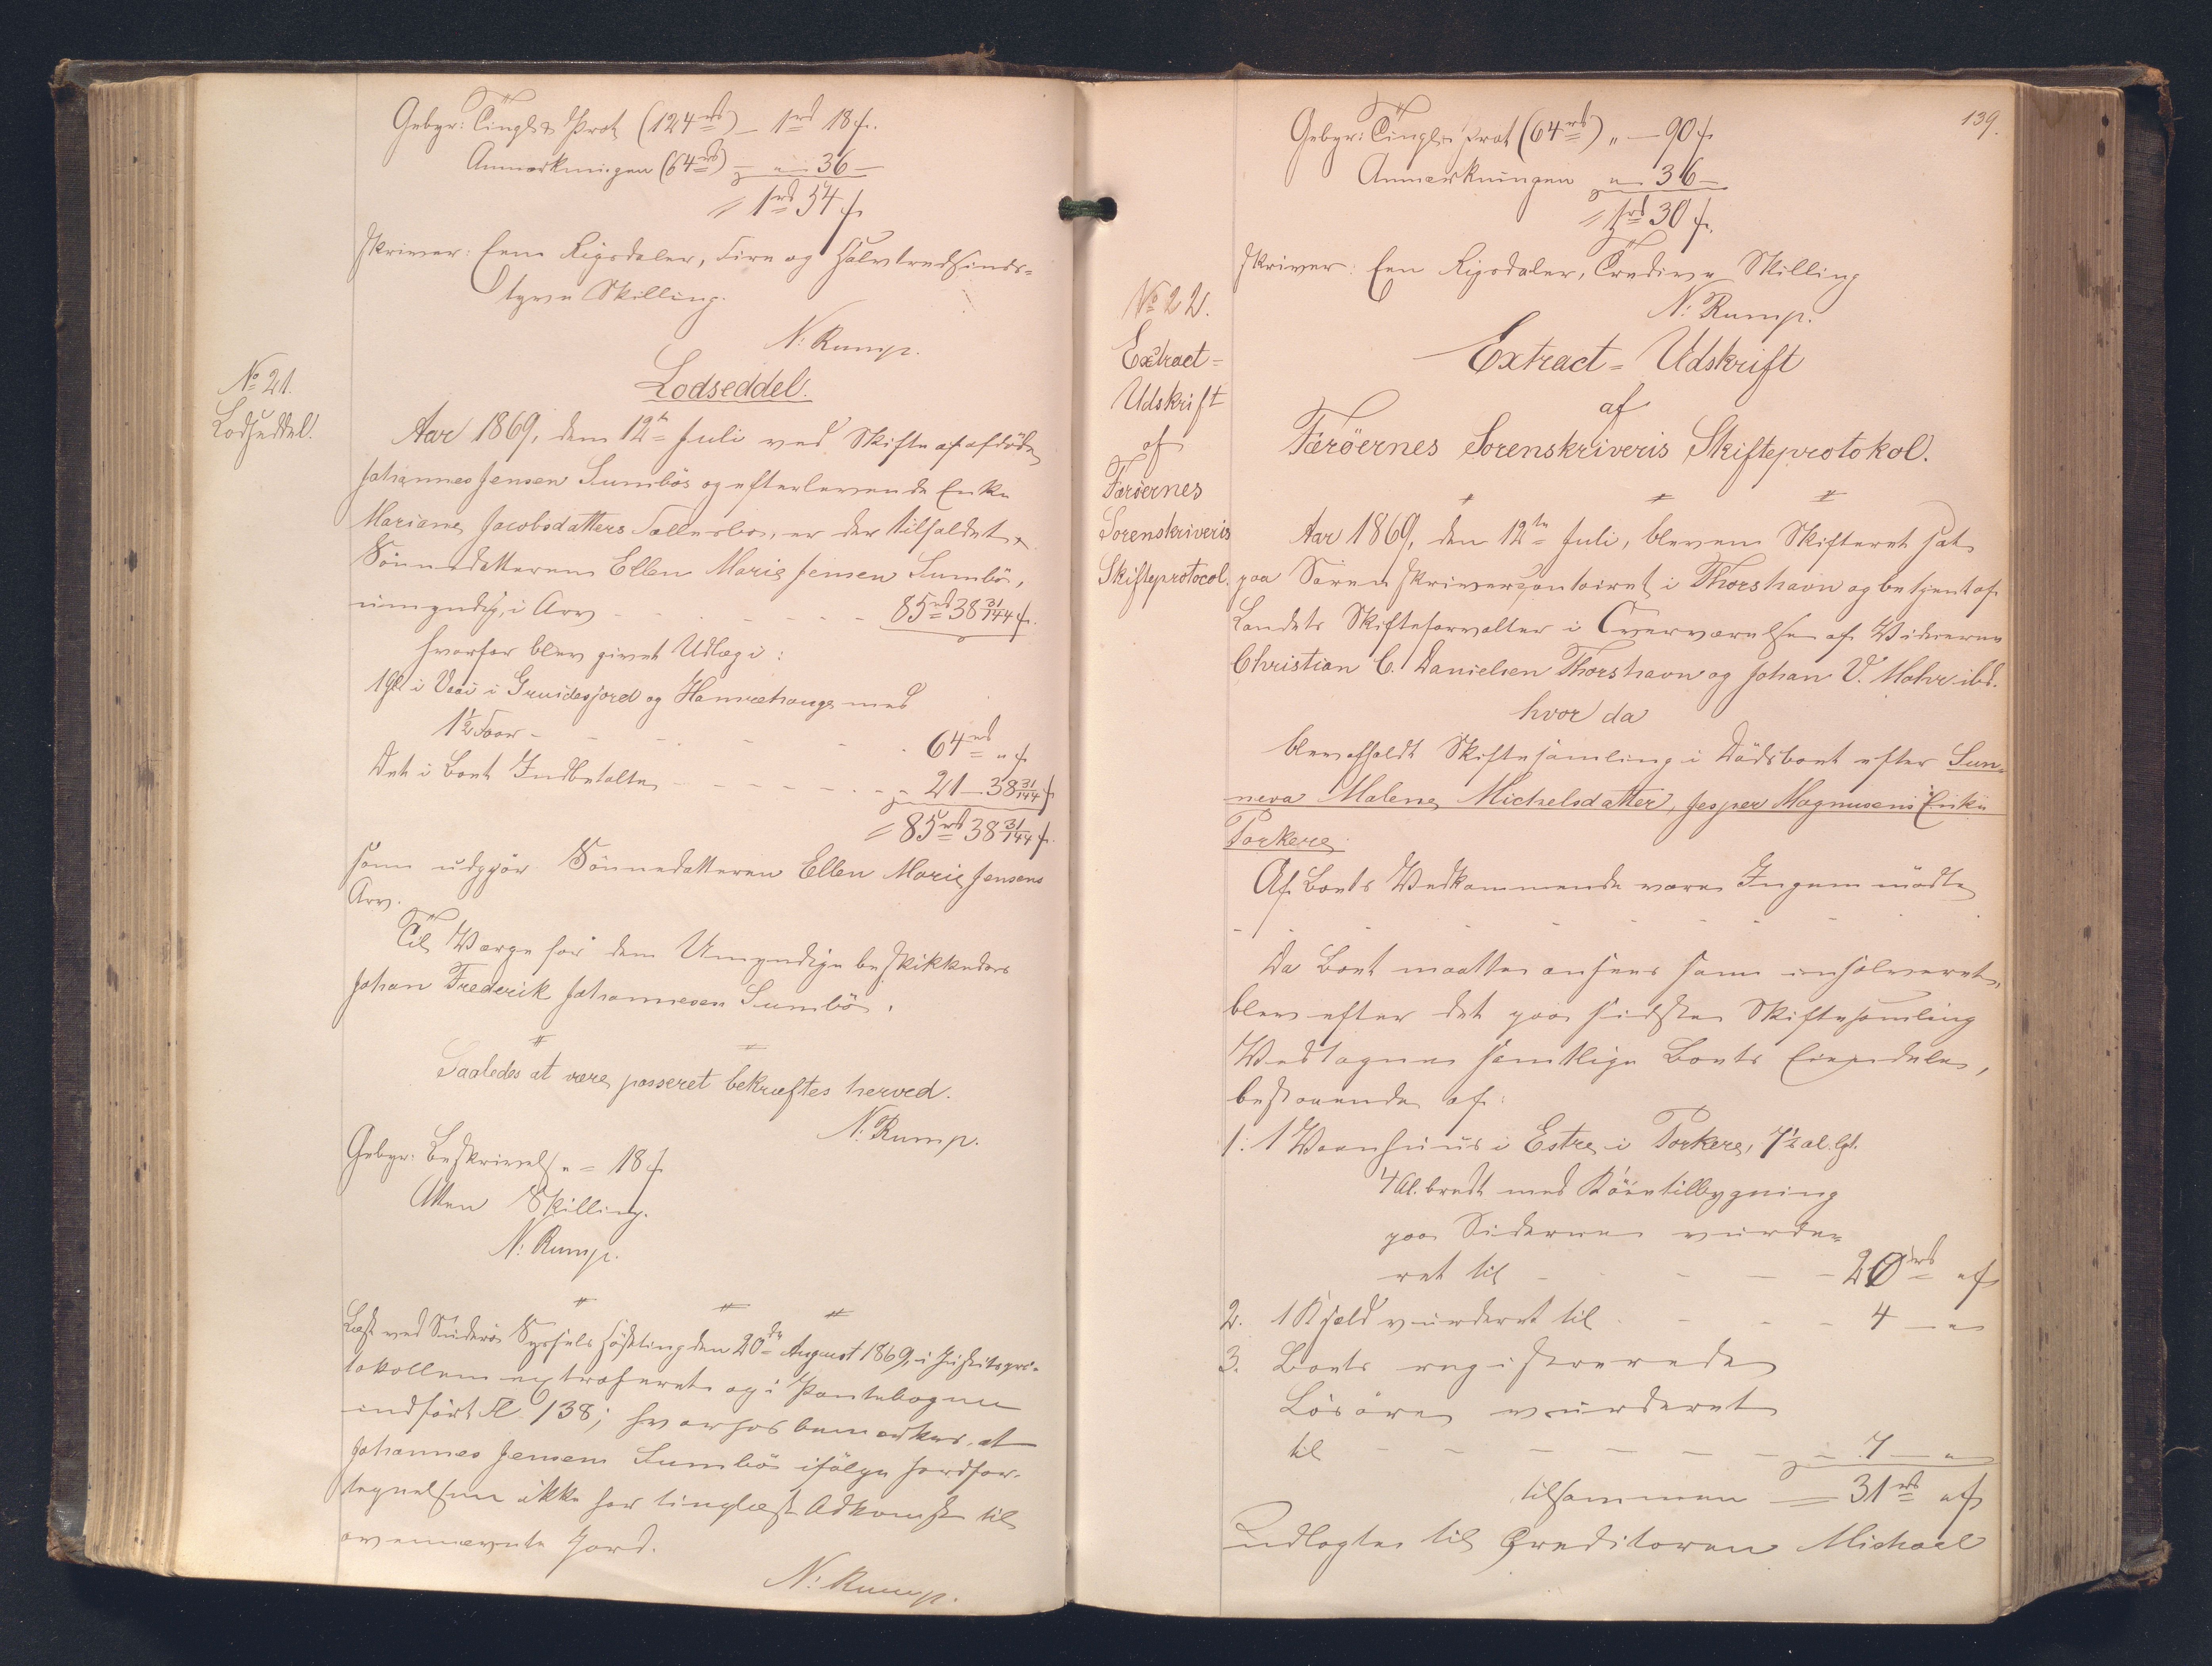 Gebyr: Tingl. & Prot (124 rd) — 1 rd 18 s.
Anmærkningen (64 rd) — " — 36 —
= 1 rd 54 s
skriver: Een Rigsdaler, Fire og Halvtredsinds-
tyve Skilling.
N: Rump.
No 21.
Lodseddel.
Lodseddel.
Aar 1869, den 12te Juli ved Skifte af afdöde
Johannes Jensen Sumbös og efterlevende Enke
Mariane Jacobsdatters Fællesbo, er der tilfaldet
Sönnedatteren Ellen Marie Jensen Sumbö,
umyndig, i Arv - - - - - 85 rd 38 31/144 s.
hvorfor blev givet Udlæg i:
1 Gl. i Vaai i Gruidesjord og Hamrahauge med
1½ Faar - - - - - 64 rd " s
Det i Boet Indbetalte - - - - - 21 — 38 31/144 s
= 85 rd 38 31/144 s.
som udgjör Sönnedatteren Ellen Marie Jensens
Arv.
Til Værge for den Umyndige beskikkedes
Johan Frederik Johannesen Sumbö.
Saaledes at være passeret bekræftes herved.
N: Rump.
Gebyr: Beskrivelse = 18 s
Atten Skilling.
N: Rump.
Læst ved Suderö Syssels Höstting den 20de August 1869, i Justitspro-
tokollen extraheret og i Pantebogen
indfört Fl. 138; hvorhos bemærkes, at
Johannes Jensen Sumbö ifölge Jordfor-
tegnelsen ikke har tinglæst Adkomst til
ovennævnte Jord.
N: Rump.
139.
Gebyr: Tingl. & Prot (64 rd) " — 90 s
Anmærkningen " — 36 —
= 1 rd 30 s.
skriver: Een Rigsdaler, Tredive Skilling
N: Rump.
No 22.
Extract-
Udskrift
af
Færöernes
Sorenskriveris
Skifteprotocol.
Extract-Udskrift
af
Færöernes Sorenskriveris Skifteprotokol.
Aar 1869, den 12te Juli, blev en Skifteret sat
paa Sörenskrivercontoiret i Thorshavn og betjent af
Landets Skifteforvalter i Overværelse af Vidnerne
Christian C. Danielsen Thorshavn og Johan V. Mohr ibd.
hvor da
blev afholdt Skiftesamling i Dödsboet efter Sun-
neva Malene Michelsdatter, Jesper Magnusens Enke
Porkere.
Af Boets Vedkommende vare Ingen mödte
- - - - - - -
Da Boet maatte ansees som insolvent,
blev efter det paa sidste Skiftesamling
Vedtagne samtlige Boets Eiendele,
bestaaende af:
1: 1 Vaanhuus i Estre i Porkere, 7½ al. lgt.
4 Al. bredt med Röientilbygning
paa Siderne vurde-
ret til - - - - 20 rd " s
2. 1 Kjeld vurderet til - - - - 4 — "
3. Boets registrerede
Lösöre vurderet
til - - - - - - - 7 — "
tilsammen = 31 rd " s
udlagte til Creditoren Michael